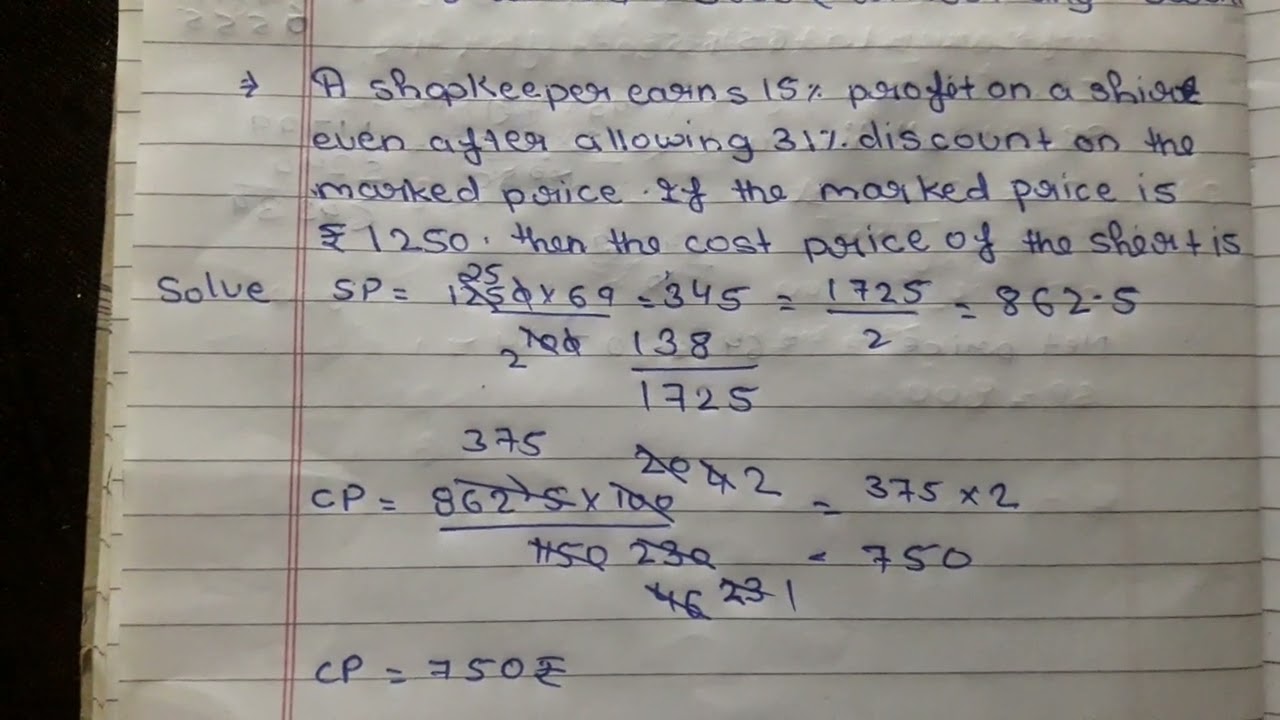 ⇒ A shopkeeper earns 15% profit on a shirt
even after allowing 31% discount on the
marked price. If the marked price is
₹1250. then the cost price of the shirt is
Solve SP = 1250 × 69 = 345 = 1725 = 862.5
25
2 100 138 2
1725
375 20 4 2
CP = 862.5 × 100 = 375 × 2
1150 230 = 750
46 23 1
CP = 750₹